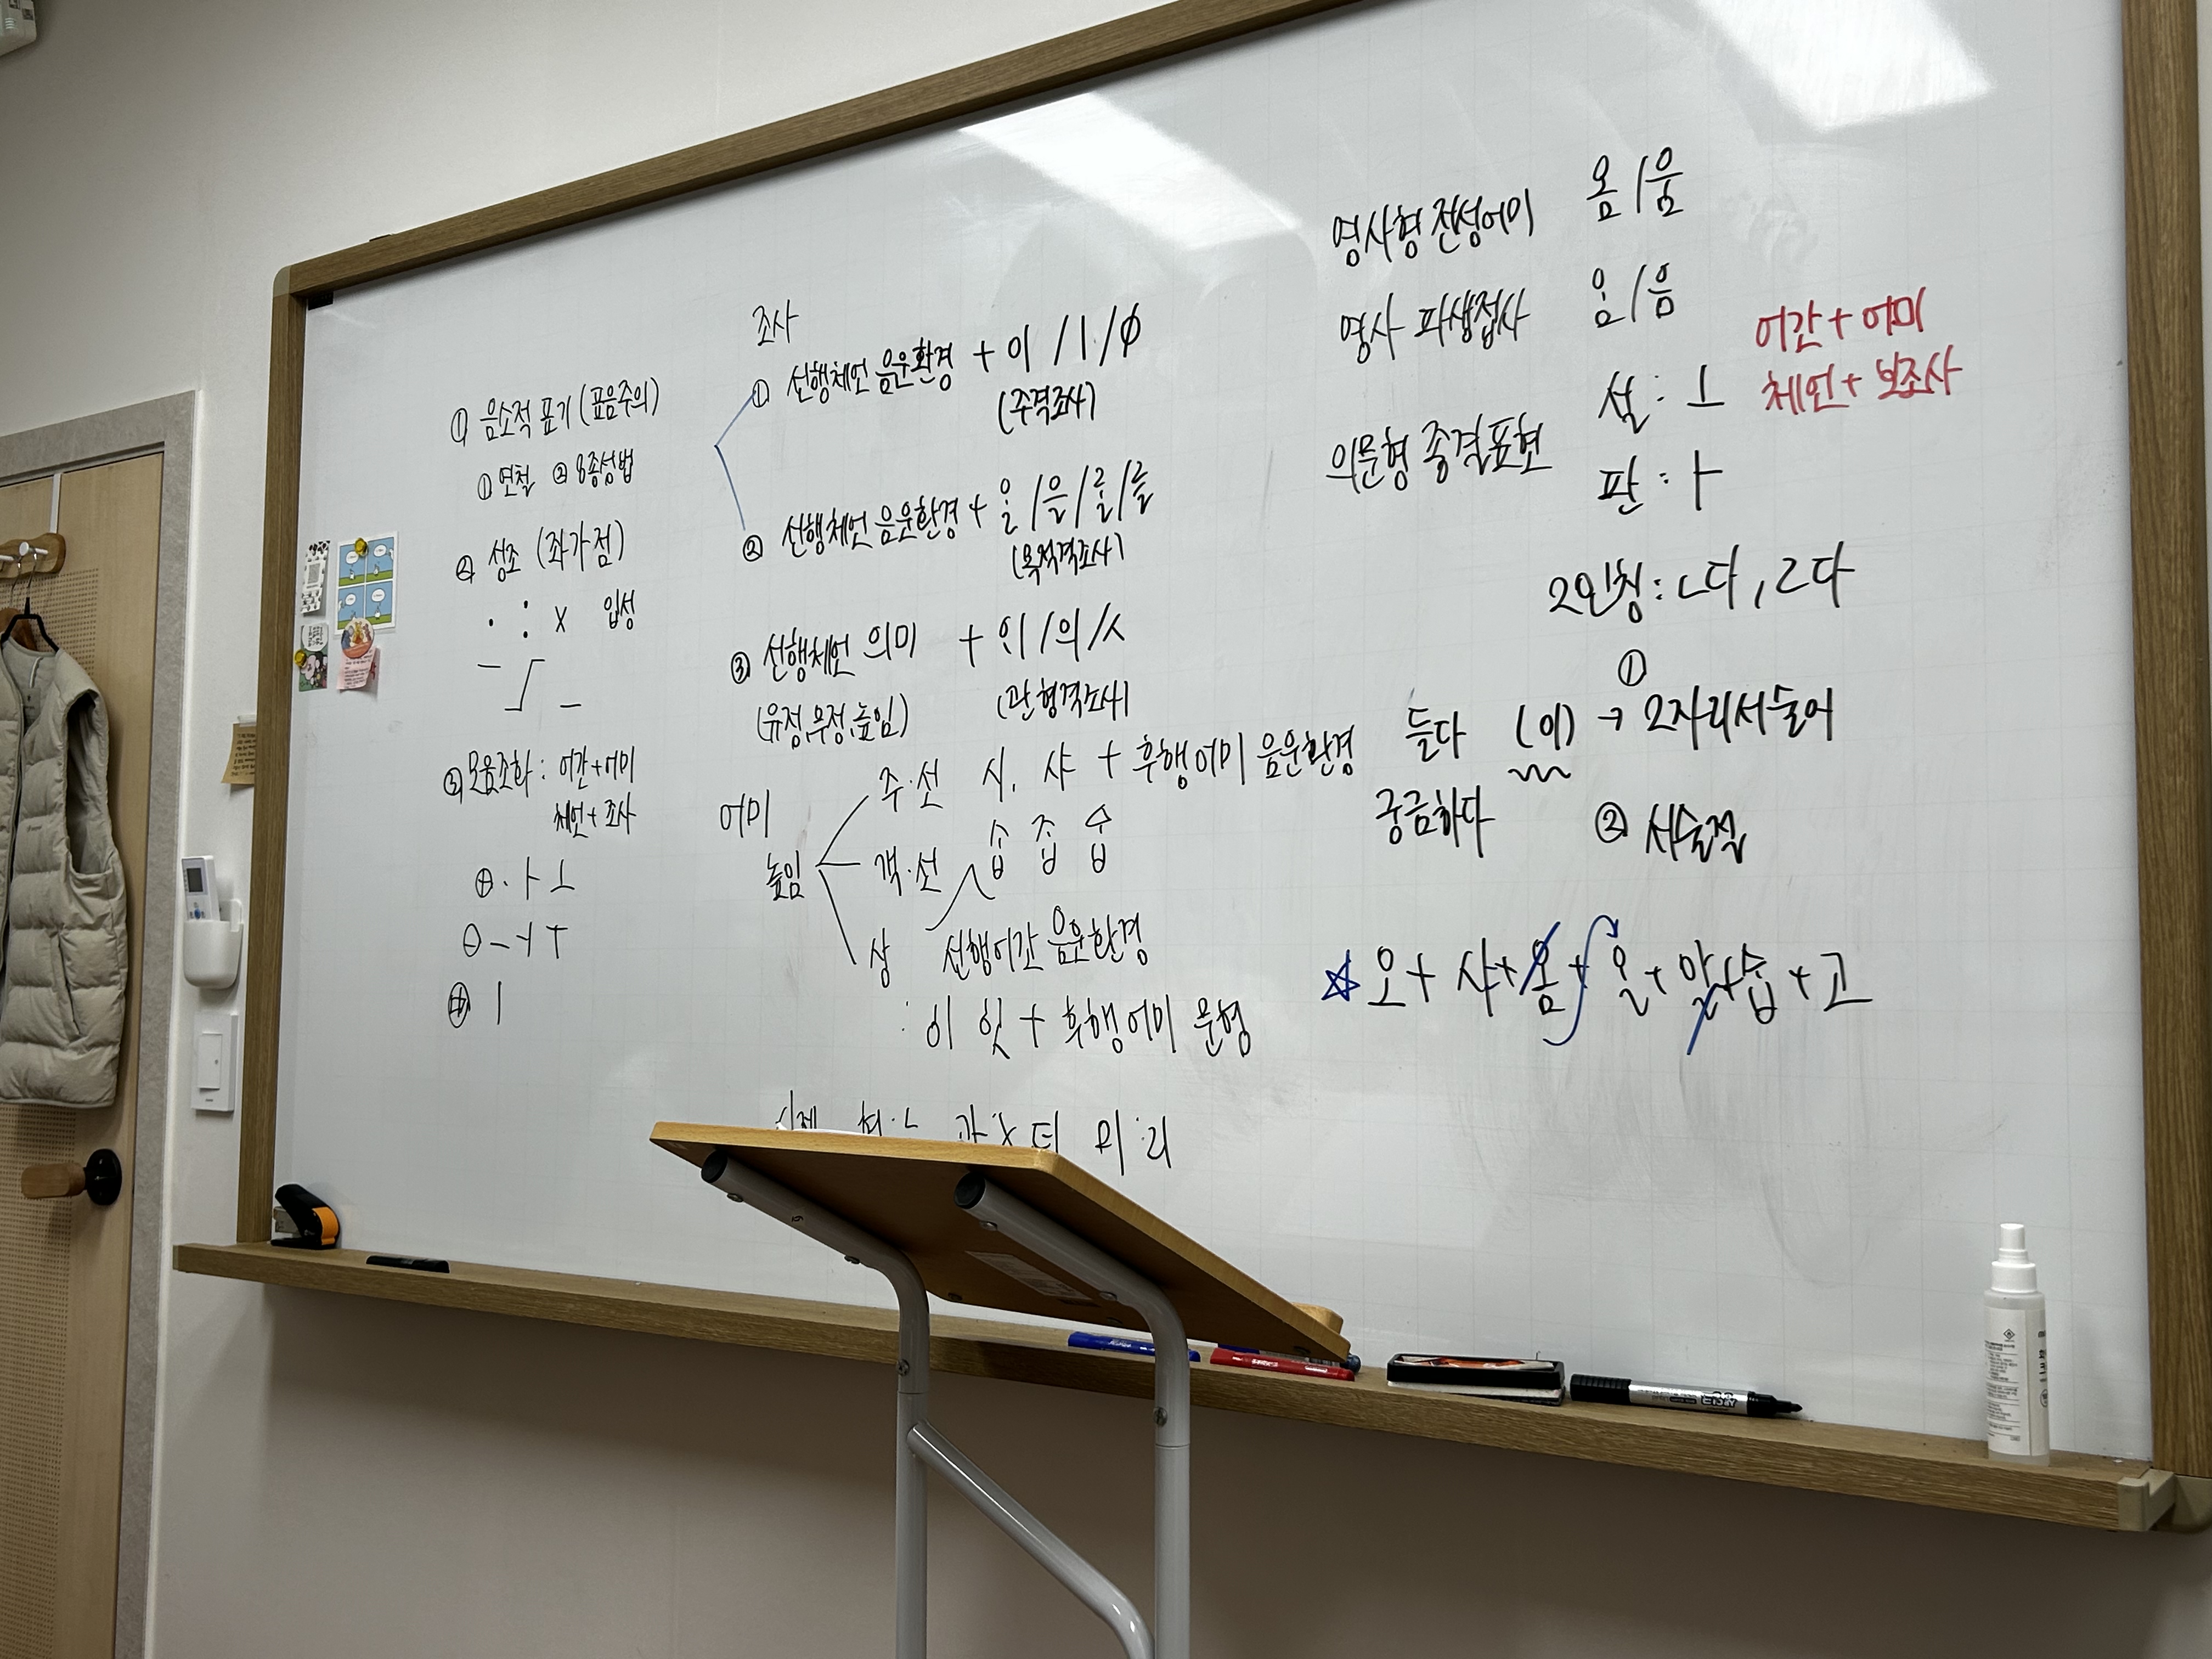 ① 음소적 표기 (표음주의)
① 연철 ② 8종성법
② 성조 (좌가점)
· : X 입성
③ 모음조화 : 어간+어미
체언+조사
⊕ · ㅏ ㅗ
⊖ ㅡ ㅓ ㅜ
ㅣ
조사
① 선행체언 음운환경 + 이 / ㅣ / ∅
(주격조사)
② 선행체언 음운환경 + ᄋᆞᆯ / 을 / ᄅᆞᆯ / 를
(목적격조사)
③ 선행체언 의미 + ᄋᆡ / 의 / ㅅ
(유정,무정,높임) (관형격조사)
어미
높임
주·선 시, 샤 + 후행어미 음운환경
객·선 ᄉᆞᆸ ᄌᆞᆸ ᅀᆞᆸ
상 선행어간 음운환경
: 이 잇 + 후행어미 문형
미:리
명사형 전성어미 옴 / 움
명사 파생접사 ᄋᆞᆷ / 음
어간 + 어미
체언 + 보조사
의문형 종결표현
설 : ㅗ
판 : ㅏ
2인칭 : ㄴ다, ㄹ다
①
듣다 (이) → 2자리서술어
궁금하다 ② 서술절
☆ 오 + 샤 + 옴 + ᄋᆞᆯ + 알 + ᅀᆞᆸ + 고